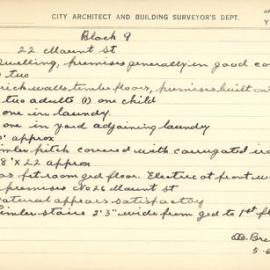 CITY ARCHITECT AND BUILDING SURVEYOR'S DEPT.
Block 9
22 Maunt St
dwelling, premises generally in good co
two
rick walls, timber floors, premises built on
two adults (1) one child
one in laundry.
one in yard adjoining laundry
approx
imber pitch covered with corrugated i
8' x 22 approx
as fit room grd floor. Electric at front w
premises No 26 Maunt st
natural appears satisfactory
imber stairs 2'3" wide from grd to 1st fl